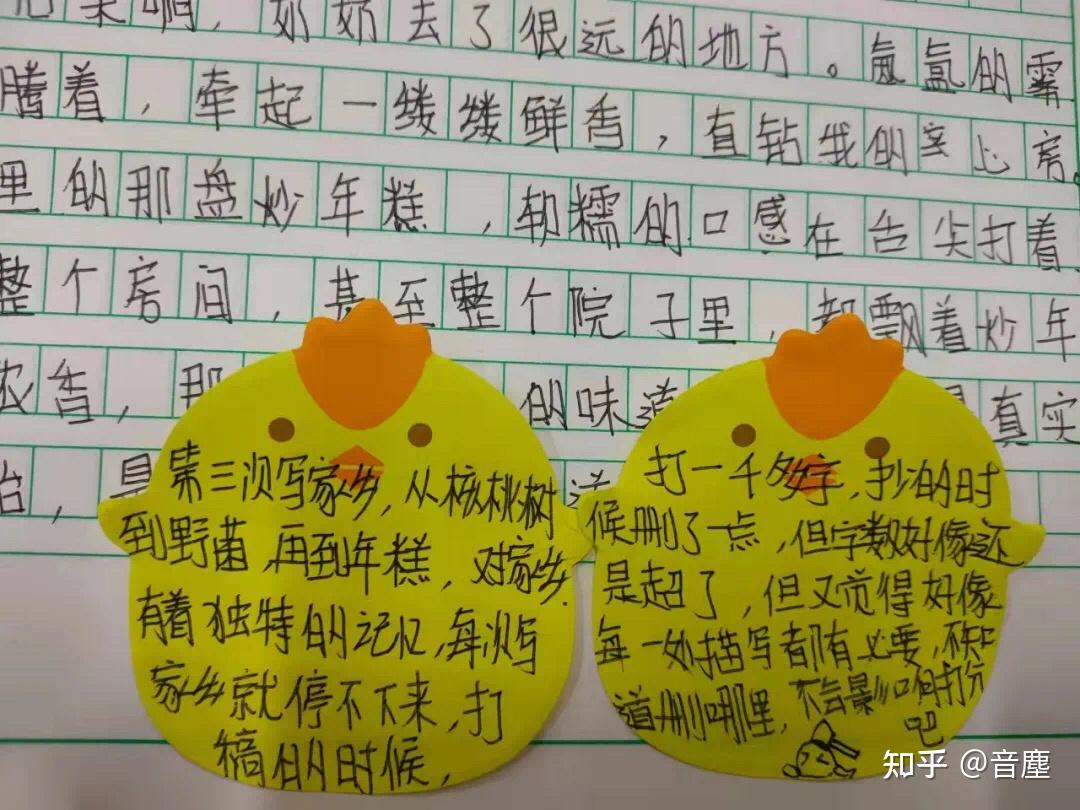 来啊，奶奶去了很远的地方。氤氲的雾
腾着，牵起一缕缕鲜香，直钻我的心房
里的那盘炒年糕，软糯的口感在舌尖打着
整个房间，甚至整个院子里，都飘着炒年
农香，那 的味道 真实
，是
第三次写家乡，从核桃树
到野菌，再到年糕，对家乡
有着独特的记忆，每次写
家乡就停不下来，打
稿的时候，
打一千多字，抄的时
候删了一点，但字数好像还
是超了，但又觉得好像
每一处描写都有必要，不知
道删哪里，不会影响打分
吧
知乎 @音塵